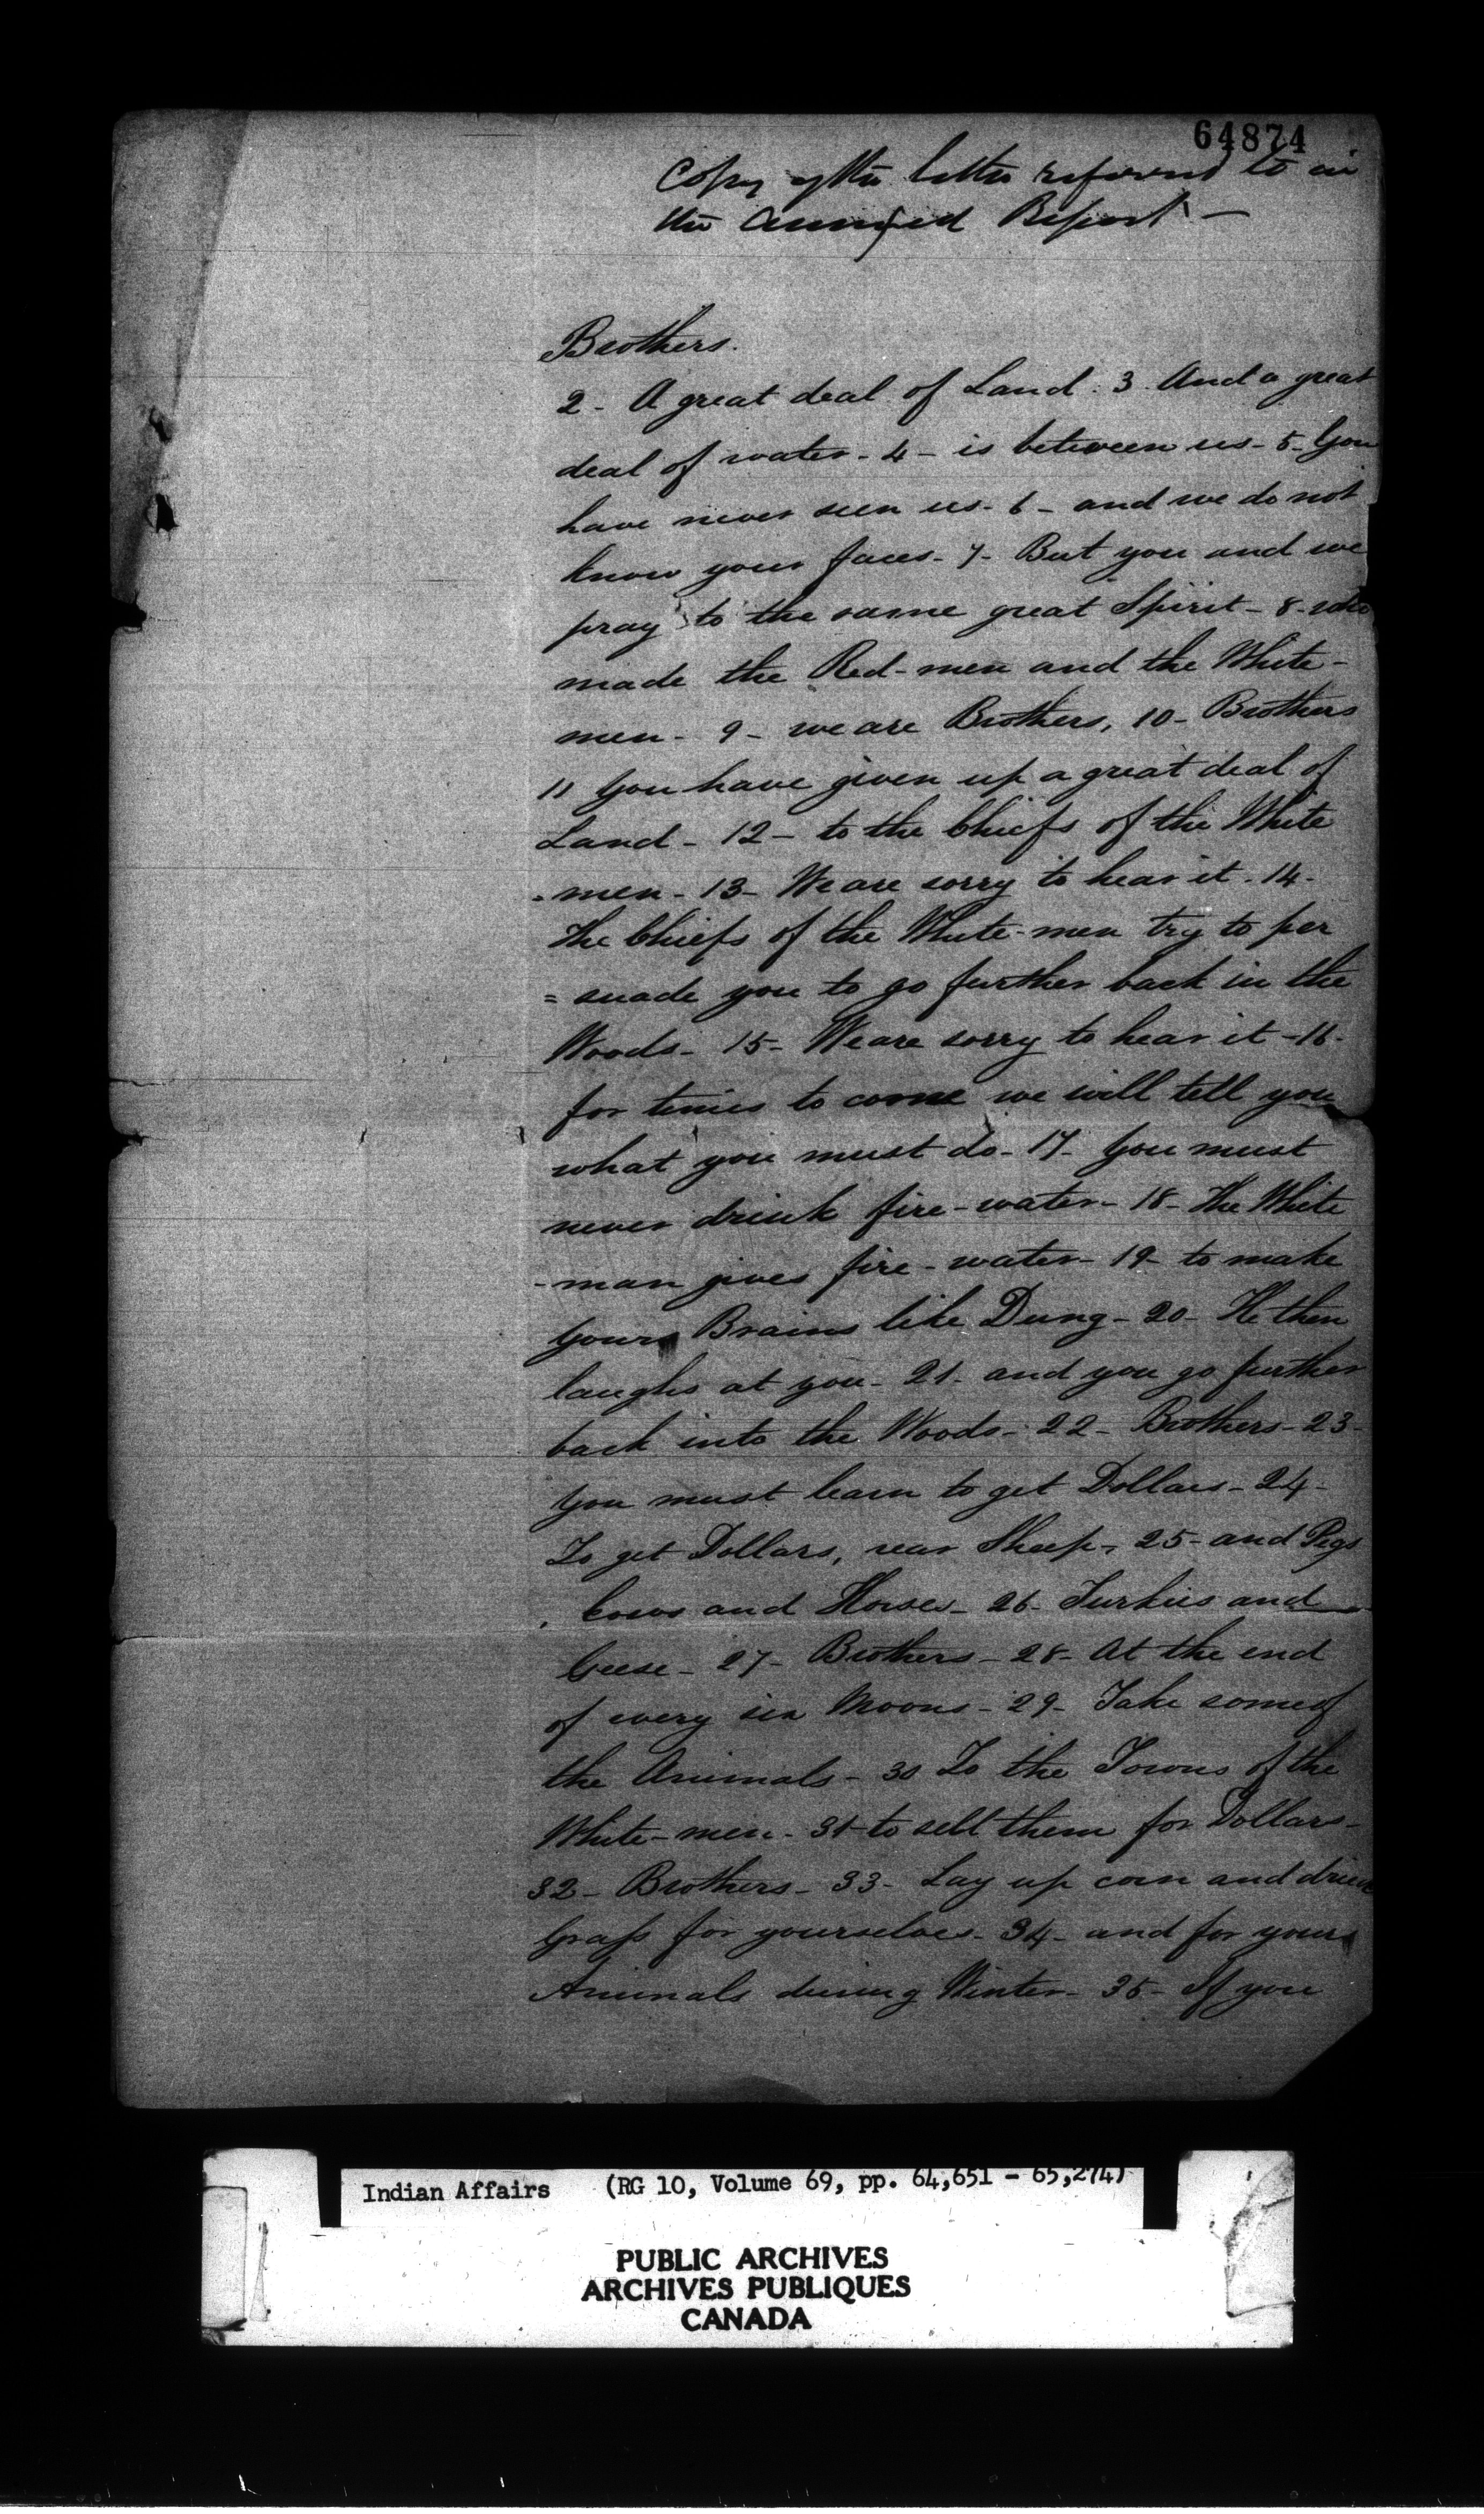 64874
Copy of the letter referred to in
the annexed Report —
Brothers.
2 - A great deal of Land. 3. And a great
deal of water - 4 - is between us - 5 - You
have never seen us - 6 - and we do not
know your faces - 7 - But you and we
pray to the same great Spirit - 8 - who
made the Red-men and the White-
men - 9 - we are Brothers, 10 - Brothers
11 You have given up a great deal of
Land - 12 - to the Chiefs of the White
-men - 13 - We are sorry to hear it - 14 -
The Chiefs of the White-men try to per
= suade you to go further back in the
Woods - 15 - We are sorry to hear it - 16 -
for times to come we will tell you
what you must do - 17 - You must
never drink fire-water - 18 - The White
-man gives fire-water - 19 - to make
your Brains like Dung - 20 - He then
laughs at you - 21 - and you go further
back into the Woods - 22 - Brothers - 23 -
You must learn to get Dollars - 24 -
To get Dollars, rear Sheep - 25 - and Pigs
, Cows and Horses - 26 - Turkies and
Geese - 27 - Brothers - 28 - At the end
of every six Moons - 29 - Take some of
the Animals - 30 To the Towns of the
White-men - 31 - to sell them for Dollars -
32 - Brothers - 33 - Lay up corn and dried
Grass for yourselves - 34 - and for your
Animals during Winter - 35 - If you
Indian Affairs (RG 10, Volume 69, pp. 64,651 - 65,274)
PUBLIC ARCHIVES
ARCHIVES PUBLIQUES
CANADA